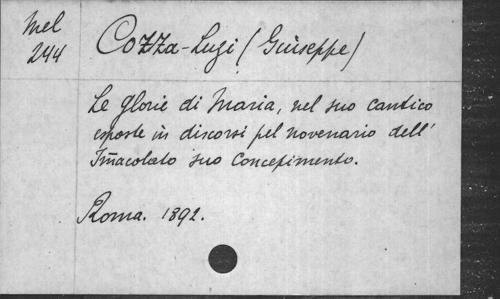 Mel
244
Cozza-Luzi (Giuseppe)
Le glorie di Maria, nel suo cantico
esposte in discorsi pel novenario dell'
Im̃acolato suo Concepimento.
Roma. 1892.